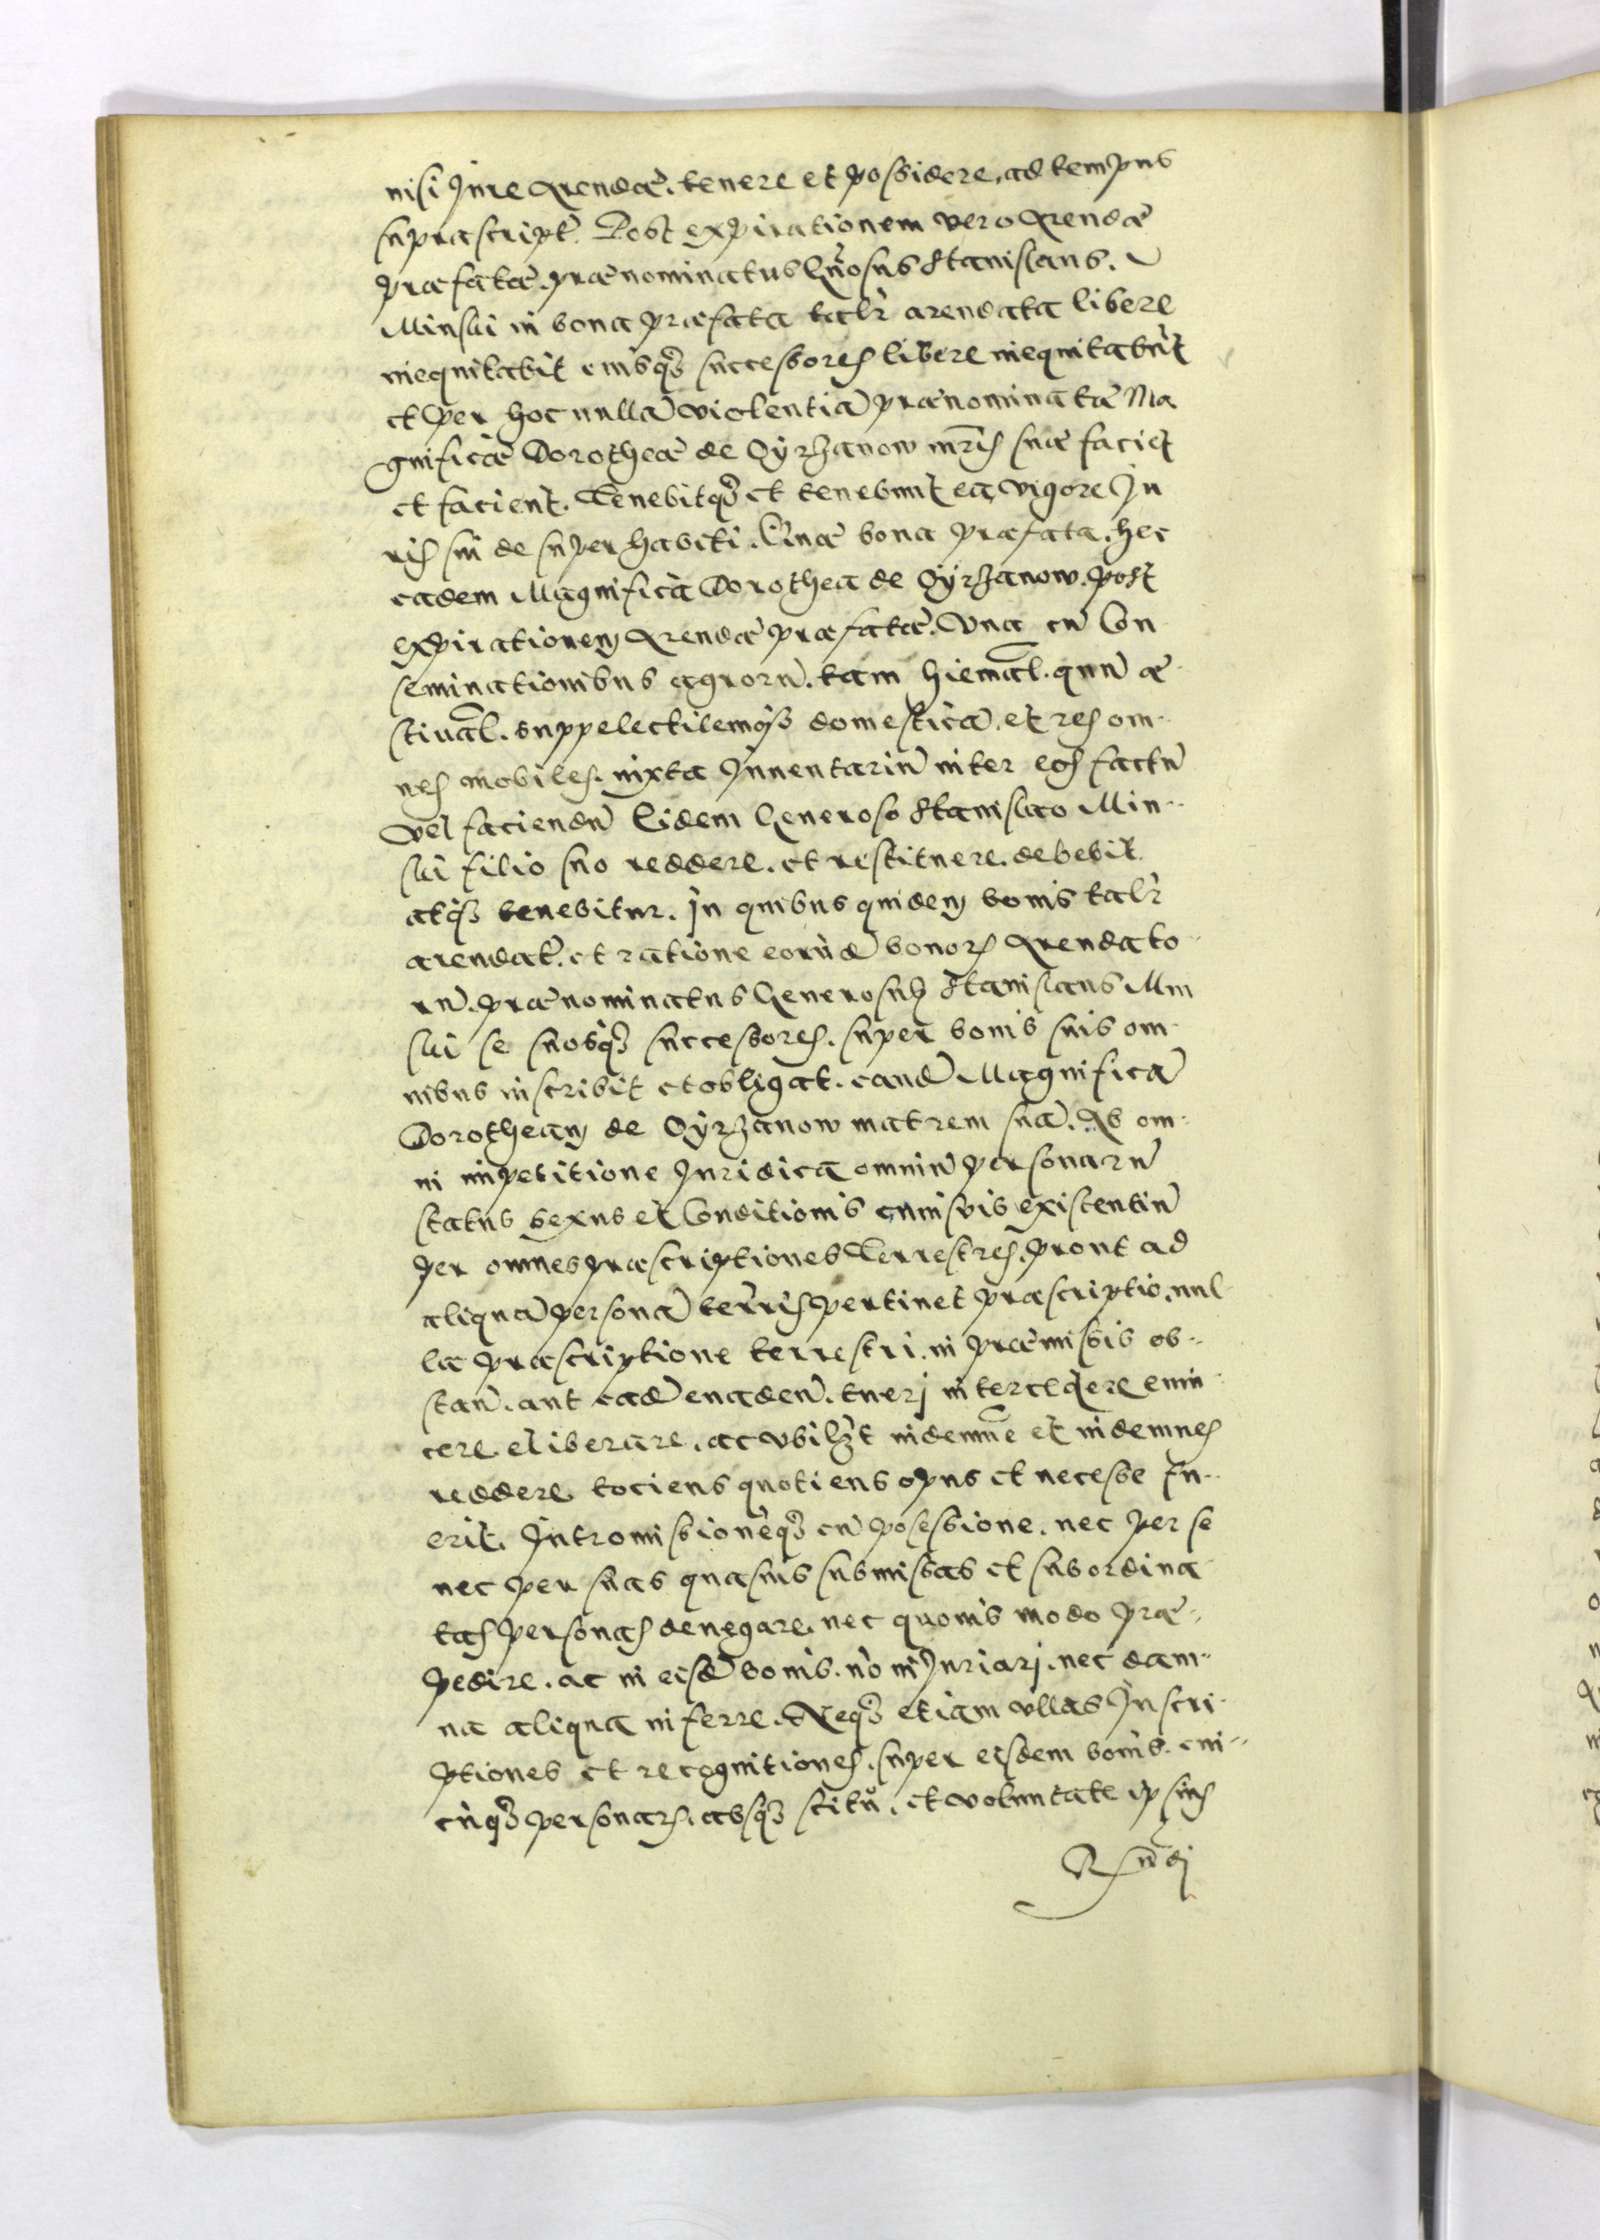 nisi Jure Arendæ. tenere et possidere, ad tempus
supra script̃. Post expirationem vero Arendæ
præfatæ. prænominatus Gn̄osus Stanislaus.
Minski in bona præfata tal̃r arendata libere
inequitabit eiusq3 successores libere inequitabũt
et per hoc nullã violentiã prænominatæ Ma
gnificæ Dorotheæ de Oÿrzanow mr̃is suæ faciet
et facient. Tenebitq3 et tenebunt ea vigore Ju
ris sui de super habiti. Quæ bona præfata. hec
eadem Magnifica Dorothea de Oÿrzanow. post
expirationem Arendæ præfatæ. Vna cũ Con
seminationibus agrorũ. tam hiemal̃. quã æ-
stiual̃. suppelectilemq3 domesticã. et res om-
nes mobiles. iuxta Jnuentariũ inter eos factũ
vel faciendũ Eidem Generoso Stanislao Min-
ski filio suo reddere. et restituere. debebit
atq3 tenebitur. Jn quibus quidem bonis tal̃r
arendat̃. et ratione eorũdẽ bonor̃ Arendato
rũ. prænominatus Generosus Stanislaus Min
ski se suosq3 successores. super bonis suis om-
nibus inscribit et obligat. eandẽ Magnificã
Dorotheam de Oÿrzanow matrem suã. Ab om-
ni impetitione Juridica omniũ personarũ
status sexus et Conditionis cuiusvis existentiũ
per omnes præscriptiones Terrestres. prout ad
aliquã personã terr̃is pertinet præscriptio, nul
la præscriptione terrestri. in præmissis ob-
stañ. aut eadẽ euadeñ. tueri intercedere euin
cere eliberare. ac vbilz̃t indemnẽ et indemnes
reddere, tociens quotiens opus et necesse fu-
erit. Jntromissionẽq3 cũ posessione. nec per se
nec per suas quasuis submissas et subordina
tas personas denegare. nec quouis modo præ-
pedire. ac in eisdẽ bonis. nõ iniuriari. nec dam-
na aliqua inferre. Neq3 etiam vllas Jnscri-
ptiones et recognitiones. super eisdem bonis. cui-
cũq3 personar̃. absq3 scitu. et voluntate ipsius